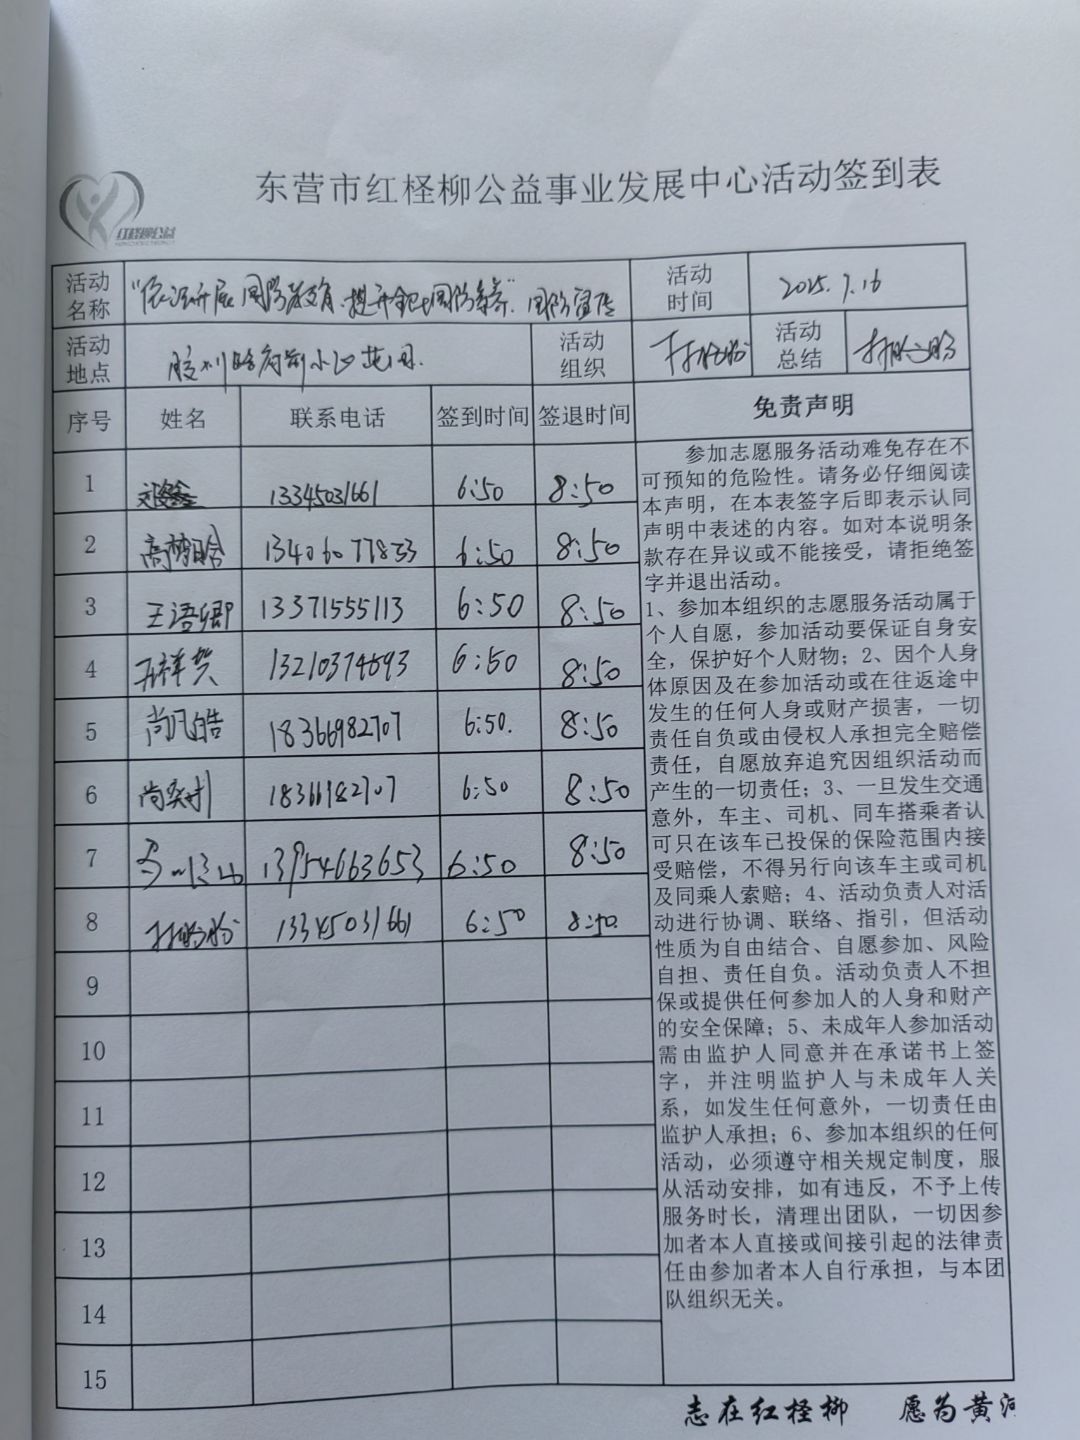 东营市红柽柳公益事业发展中心活动签到表
红柽柳公益
活动名称 "依法开展国防教育 提升全民国防素养" 国防宣传 活动时间 2025.7.16
活动地点 胶州路府前小 活动组织 活动总结
序号 姓名 联系电话 签到时间 签退时间 免责声明
1 13345031661 6:50 8:50
2 高梦晗 13406077833 6:50 8:50
3 王语卿 13371555113 6:50 8:50
4 祥贺 13210374693 6:50 8:50
5 尚凡皓 18366982707 6:50. 8:50
6 尚奕 18366982707 6:50 8:50
7 13954663653 6:50 8:50
8 13345031661 6:50 8:50.
9
10
11
12
13
14
15
参加志愿服务活动难免存在不
可预知的危险性。请务必仔细阅读
本声明，在本表签字后即表示认同
声明中表述的内容。如对本说明条
款存在异议或不能接受，请拒绝签
字并退出活动。
1、参加本组织的志愿服务活动属于
个人自愿，参加活动要保证自身安
全，保护好个人财物；2、因个人身
体原因及在参加活动或在往返途中
发生的任何人身或财产损害，一切
责任自负或由侵权人承担完全赔偿
责任，自愿放弃追究因组织活动而
产生的一切责任；3、一旦发生交通
意外，车主、司机、同车搭乘者认
可只在该车已投保的保险范围内接
受赔偿，不得另行向该车主或司机
及同乘人索赔；4、活动负责人对活
动进行协调、联络、指引，但活动
性质为自由结合、自愿参加、风险
自担、责任自负。活动负责人不担
保或提供任何参加人的人身和财产
的安全保障；5、未成年人参加活动
需由监护人同意并在承诺书上签
字，并注明监护人与未成年人关
系，如发生任何意外，一切责任由
监护人承担；6、参加本组织的任何
活动，必须遵守相关规定制度，服
从活动安排，如有违反，不予上传
服务时长，清理出团队，一切因参
加者本人直接或间接引起的法律责
任由参加者本人自行承担，与本团
队组织无关。
志在红柽柳 愿为黄河